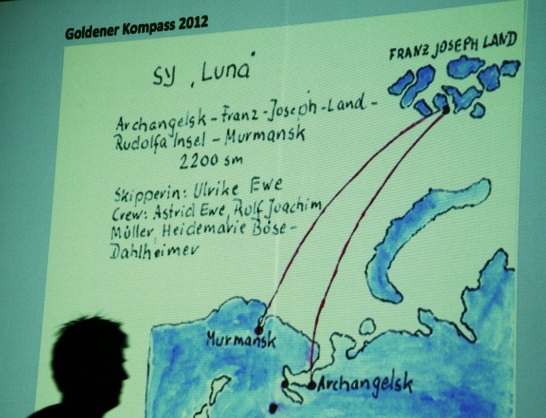 Goldener Kompass 2012
FRANZ JOSEPH LAND
SY „Luna"
Archangelsk - Franz - Joseph - Land -
Rudolfa Insel - Murmansk
2200 sm
Skipperin: Ulrike Ewe
Crew: Astrid Ewe, Rolf Joachim
Müller, Heidemarie Böse -
Dahlheimer
Murmansk
Archangelsk